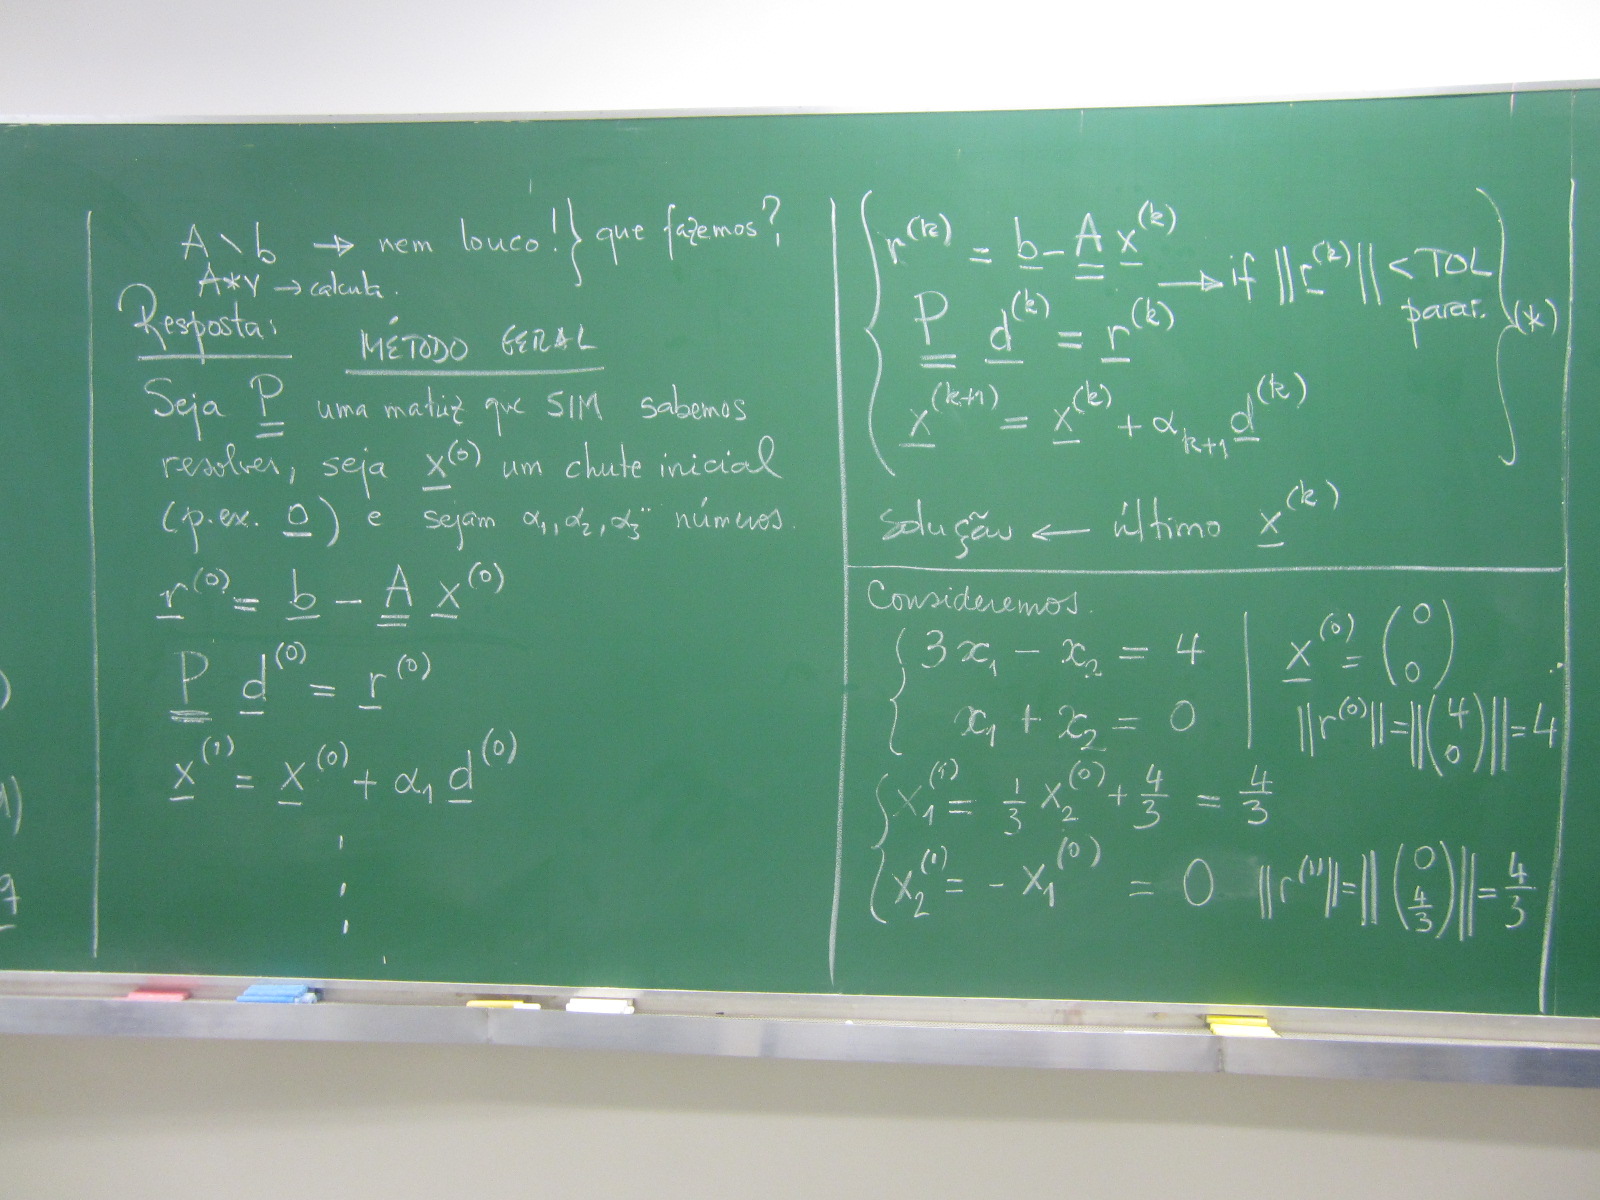 A \ b → nem louco! } que fazemos?
A*v → calcula.
Resposta:
MÉTODO GERAL
Seja P uma matriz que SIM sabemos
resolver, seja x^(0) um chute inicial
(p.ex. 0) e sejam α₁, α₂, α₃ ... números.
r^(0) = b - A x^(0)
P d^(0) = r^(0)
x^(1) = x^(0) + α₁ d^(0)
r^(k) = b - A x^(k)
→ if ||r^(k)|| < TOL
parar.
P d^(k) = r^(k)
(*)
x^(k+1) = x^(k) + α_(k+1) d^(k)
Solução ← último x^(k)
Consideremos.
3x₁ - x₂ = 4 | x^(0) = (0 0)
x₁ + x₂ = 0 | ||r^(0)|| = ||(4 0)|| = 4
x₁^(1) = 1/3 x₂^(0) + 4/3 = 4/3
x₂^(1) = - x₁^(0) = 0 ||r^(1)|| = ||(0 4/3)|| = 4/3